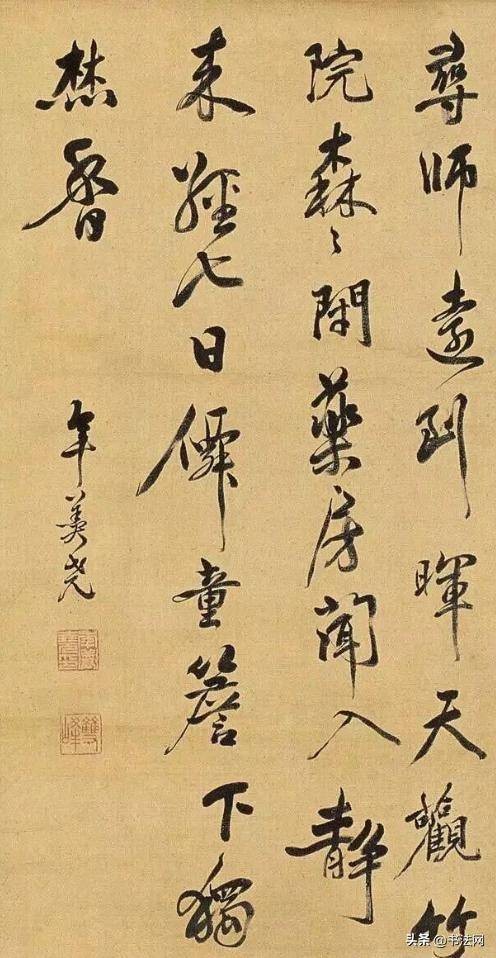 尋師遠到暉天觀竹
院森〻閉藥房聞入靜
来經七日僊童簷下獨
焚香
年羹堯
雙峰
头条 @书法网